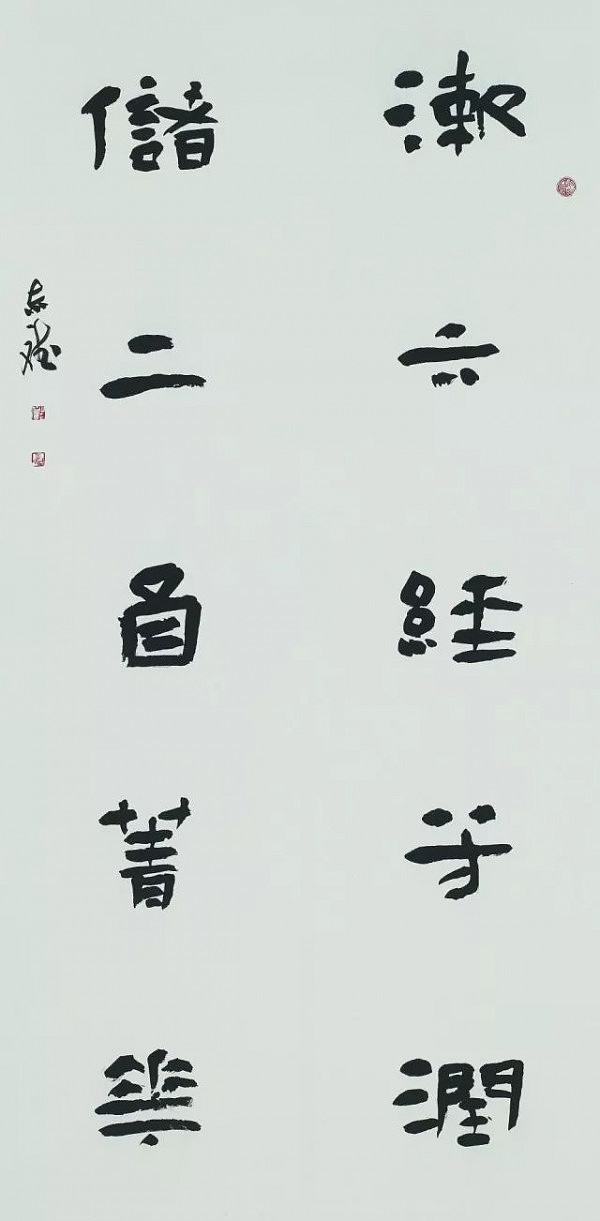 漱六經芳潤
儲二酉菁華